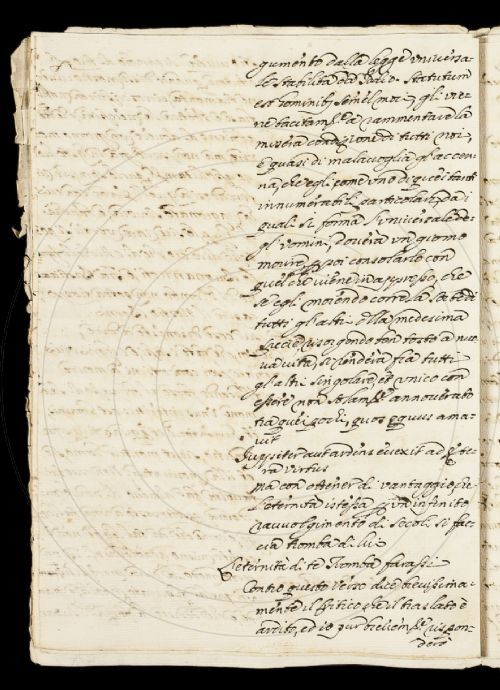 gumento dalla legge universa-
le stabilita da Statutum
est hominibus semel mori, gli vie-
ne tacitam.te a rammentare la
misera condizione di tutti noi,
e quasi di mala voglia gl'accen-
na, che egli come uno di questi tanti
innumerabili particolari, da i
quali si forma l'universale de
gl'uomini, dovera un giorno
morire, poi consolarlo con
quel che viene in appresso, che
se egli morendo corre la
tutti gl'altri della medesima
specie, risorgendo ten tosto a nuo
va vita, si renderà fra tutti
gl'altri singolare, et unico con
essere non solam.te annoverato
tra quei pochi, quos equus ama-
vit
Juppiter aut ardens evexit ad Ethe
ra virtus
ma con ottener di vantaggio, che
l'eternità istessa un infinito
ravvolgimento di secoli si fac-
cia tromba di lui
L'eternità di te tromba farassi
Contro questo verso dice brevissima-
mente il Critico che il traslato è
ardito, ed io pur brevem.te rispon-
derò